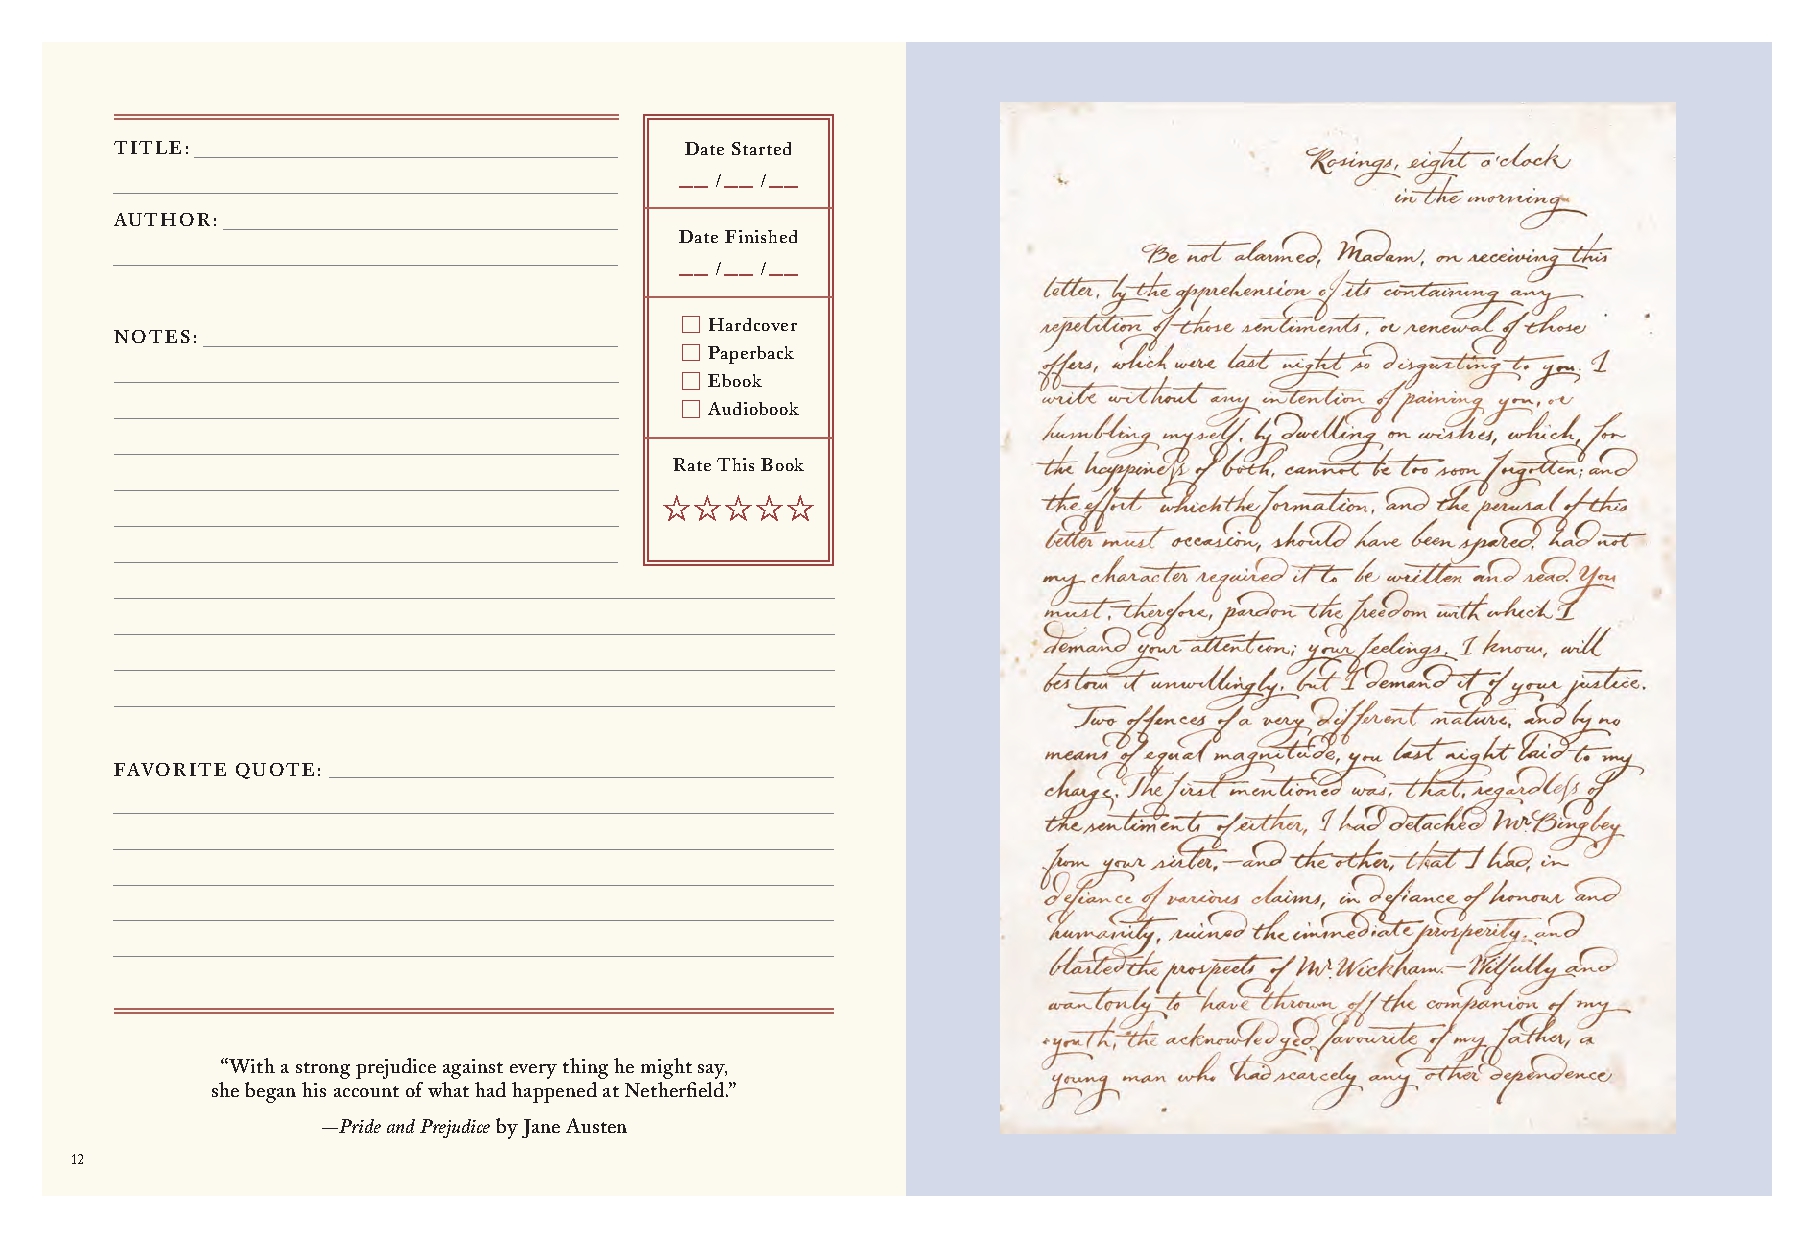 TITLE:
AUTHOR:
NOTES:
FAVORITE QUOTE:
Date Started
__ /__ /__
Date Finished
__ /__ /__
Hardcover
Paperback
Ebook
Audiobook
Rate This Book
“With a strong prejudice against every thing he might say,
she began his account of what had happened at Netherfield.”
—Pride and Prejudice by Jane Austen
12
Rosings, eight o'clock
in the morning
Be not alarmed, Madam, on receiving this
letter, by the apprehension of its containing any
repetition of those sentiments, or renewal of those
offers, which were last night so disgusting to you. I
write without any intention of paining you, or
humbling myself, by dwelling on wishes, which, for
the happiness of both, cannot be too soon forgotten; and
the effort which the formation, and the perusal of this
letter must occasion, should have been spared, had not
my character required it to be written and read. You
must, therefore, pardon the freedom with which I
demand your attention; your feelings, I know, will
bestow it unwillingly, but I demand it of your justice.
Two offences of a very different nature, and by no
means of equal magnitude, you last night laid to my
charge. The first mentioned was, that, regardless of
the sentiments of either, I had detached Mr. Bingley
from your sister,—and the other, that I had, in
defiance of various claims, in defiance of honour and
humanity, ruined the immediate prosperity, and
blasted the prospects of Mr. Wickham.—Wilfully and
wantonly to have thrown off the companion of my
youth, the acknowledged favourite of my father, a
young man who had scarcely any other dependence